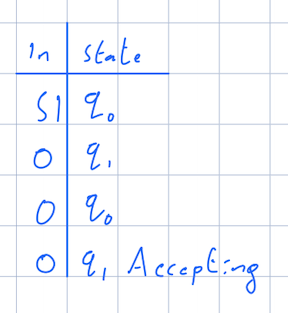 In state
S1 q₀
0 q₁
0 q₀
0 q₁ Accepting